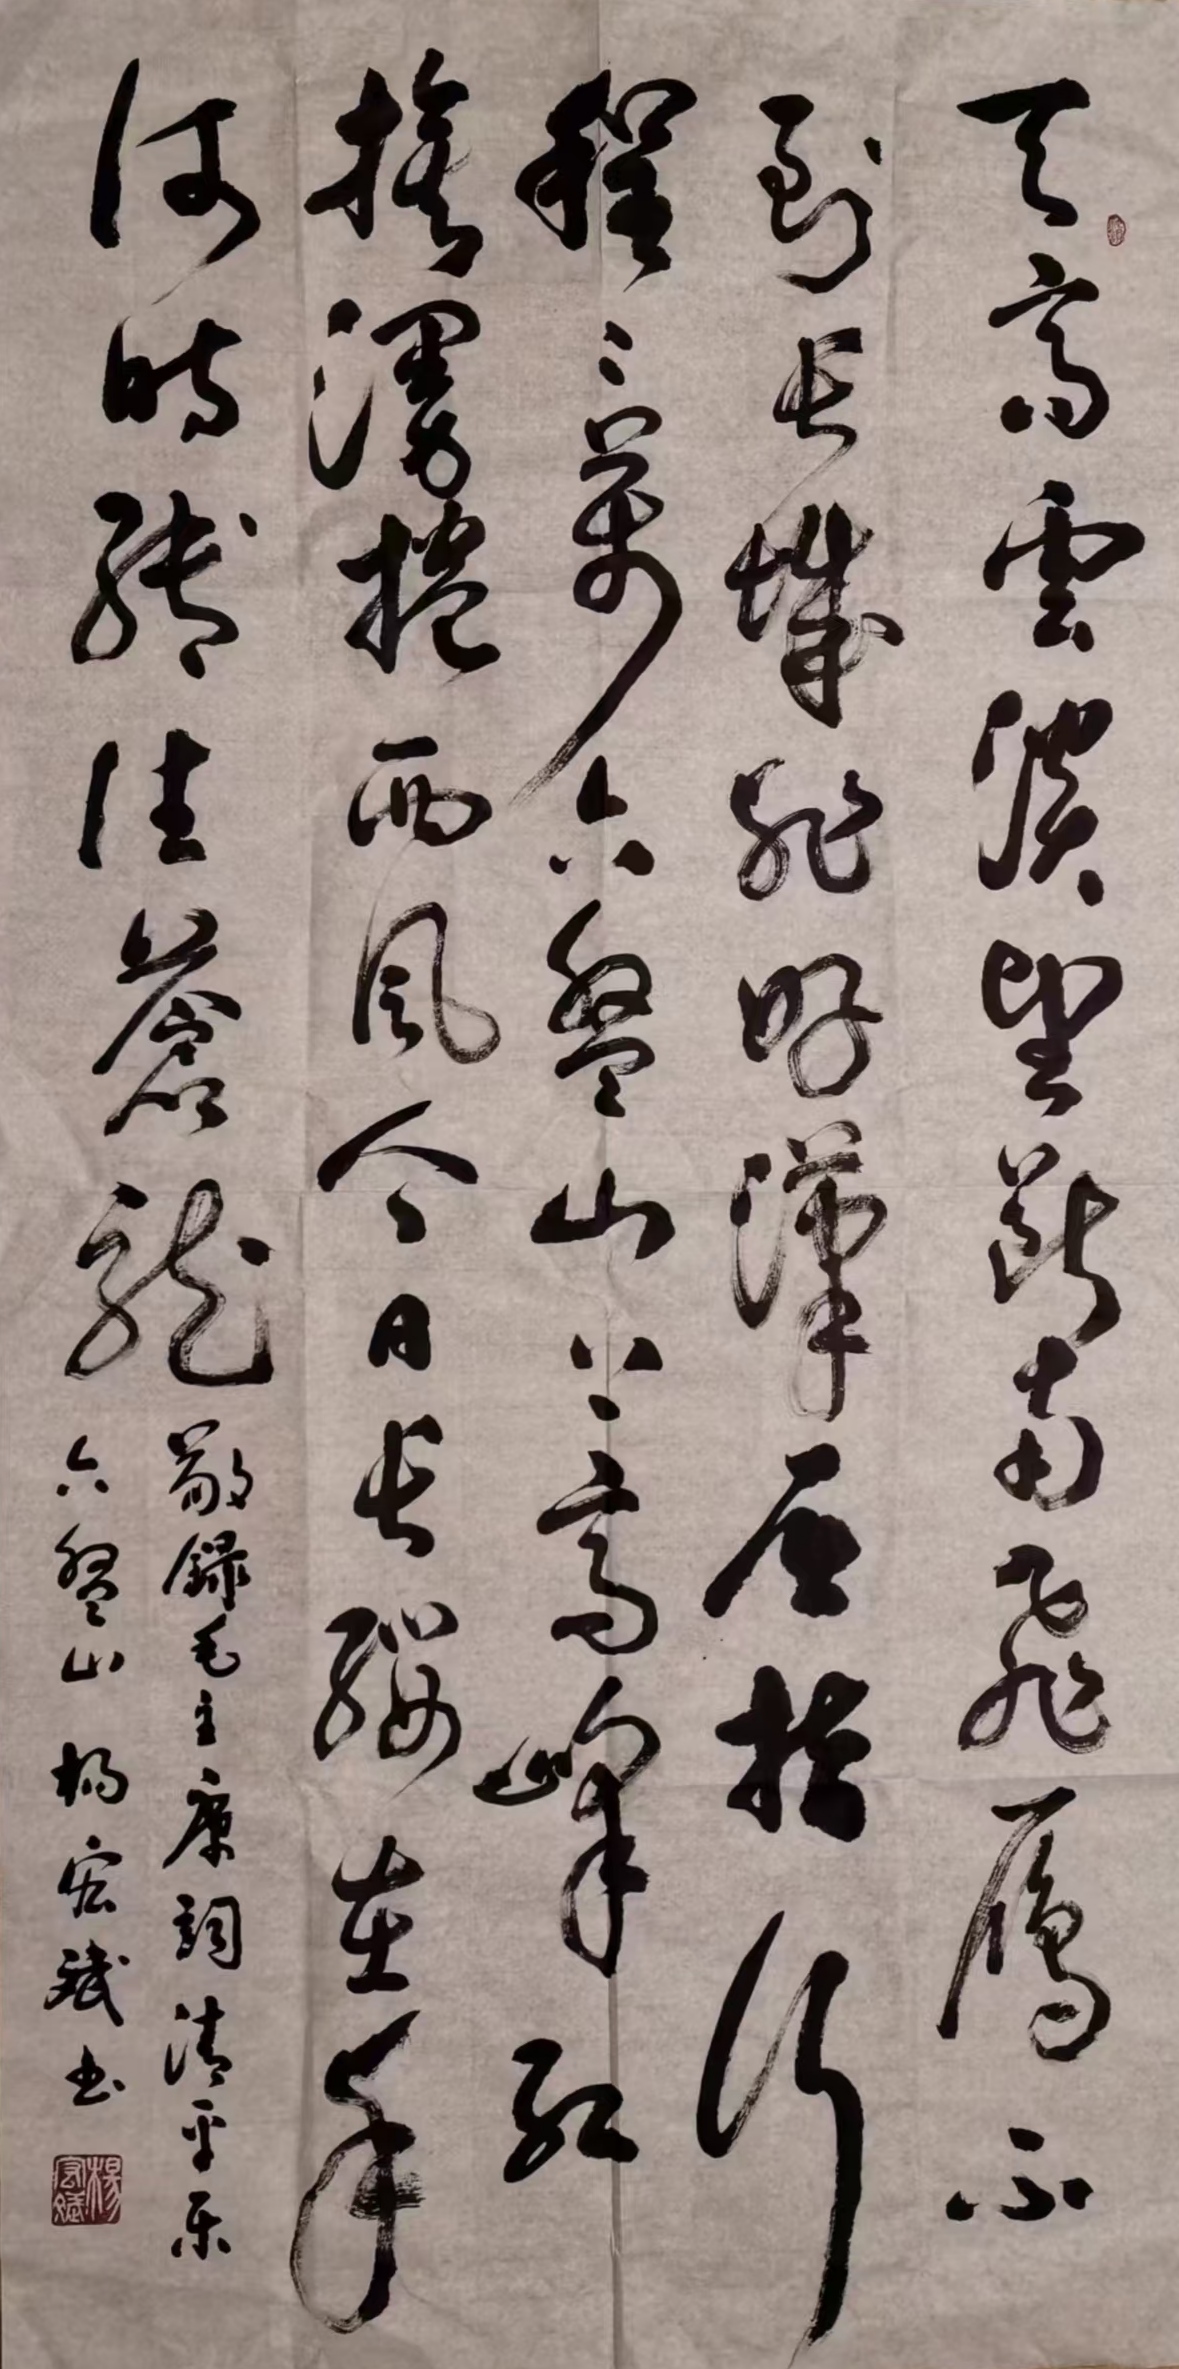 天高雲淡望斷南飛雁不
到長城非好漢屈指行
程二萬六盤山上高峰紅
旗漫捲西風今日長纓在手
何時縛住蒼龍
敬録毛主席詞清平乐
六盤山 楊宏斌书